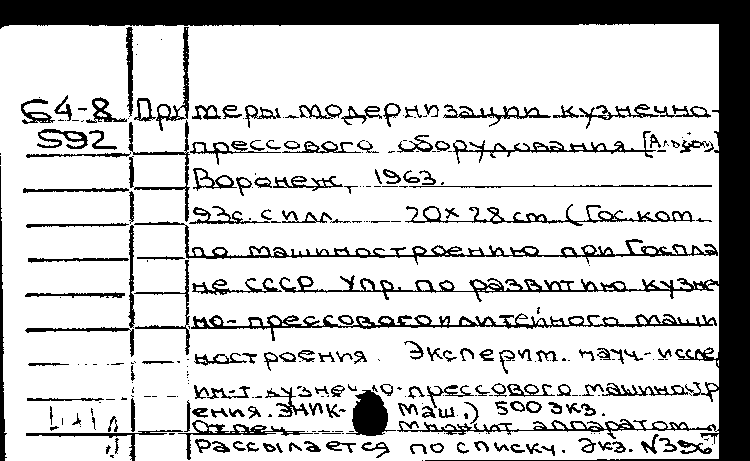 64-8 Примеры модернизации кузнечно-
S92 прессового оборудования. [Альбом]
Воронеж, 1963.
93с. с илл. 20×28 см. (Гос. ком.
по машиностроению при Госпла
не СССР Упр. по развитию кузне
но-прессового и литейного маши
ностроения. Эксперим. науч.-иссле
ин-т кузнечно-прессового машиностр
ения. ЭНИК- Маш.) 500 экз.
Отпеч. множит. аппаратом
Рассылается по списку. Экз. N396